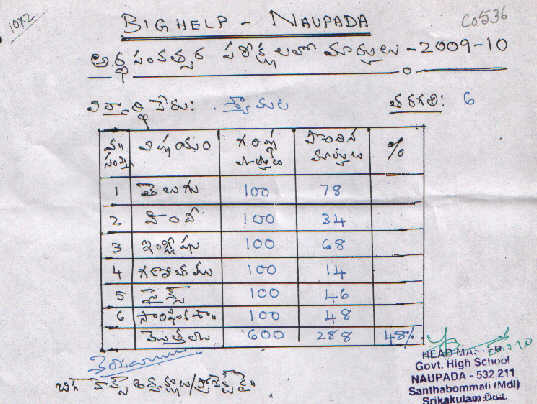 1092
Co536
BIGHELP - NAUPADA
అర్థ సంవత్సర పరీక్షలలో మార్కులు - 2009-10
విద్యార్థి పేరు: శ్యామల తరగతి: 6
వ. సంఖ్య విషయం గరిష్ఠ మార్కులు పొందిన మార్కులు %
1 తెలుగు 100 78
2 హిందీ 100 34
3 ఇంగ్లీషు 100 68
4 గణితము 100 14
5 సైన్స్ 100 46
6 సాంఘిక శా. 100 48
మొత్తము 600 288 48%
HEAD MAS
Govt. High School
NAUPADA - 532 211
Santhabommali (Mdl)
Srikakulam Dist.